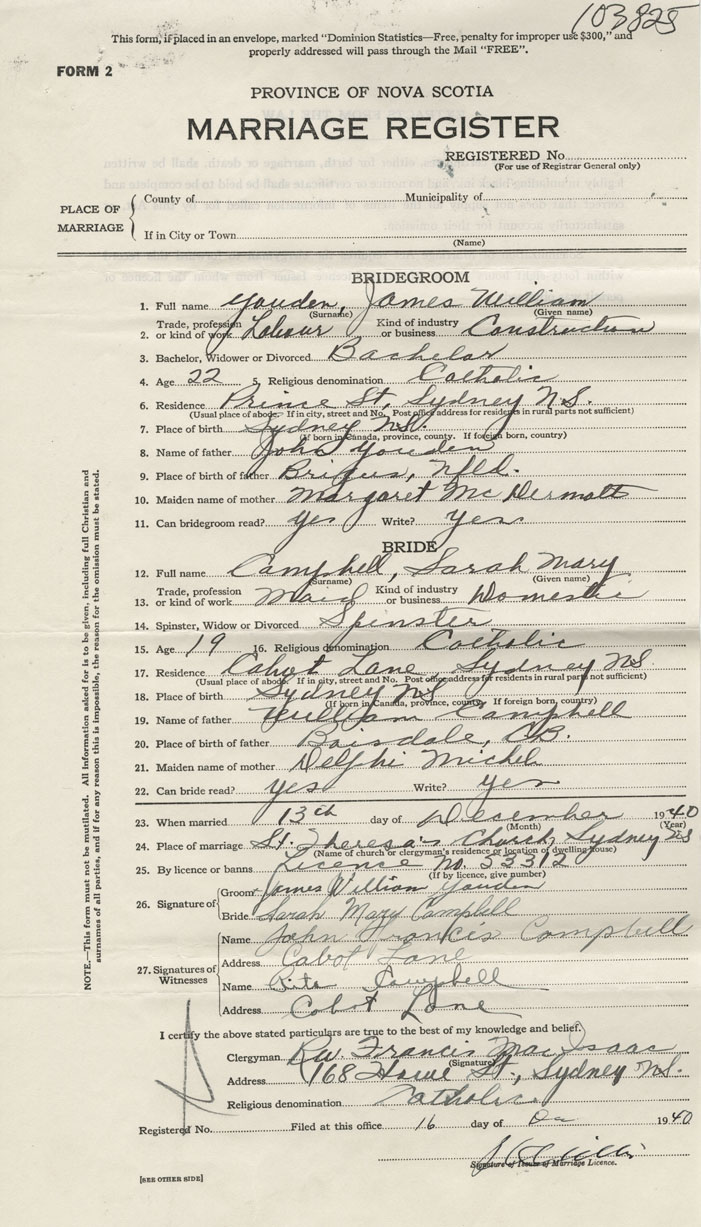 103825
This form, if placed in an envelope, marked "Dominion Statistics—Free, penalty for improper use $300," and
properly addressed will pass through the Mail "FREE".
FORM 2
PROVINCE OF NOVA SCOTIA
MARRIAGE REGISTER
REGISTERED No.
(For use of Registrar General only)
PLACE OF MARRIAGE
County of Municipality of
If in City or Town
(Name)
BRIDEGROOM
1. Full name Youden, James William
(Surname) (Given name)
2. Trade, profession or kind of work Labour Kind of industry or business Construction
3. Bachelor, Widower or Divorced Bachelor
4. Age 22 5. Religious denomination Catholic
6. Residence Prince St, Sydney N.S.
(Usual place of abode. If in city, street and No. Post office address for residents in rural parts not sufficient)
7. Place of birth Sydney N.S.
(If born in Canada, province, county. If foreign born, country)
8. Name of father John Youden
9. Place of birth of father Brigus, Nfld.
10. Maiden name of mother Margaret McDermott
11. Can bridegroom read? yes Write? yes
BRIDE
12. Full name Campbell, Sarah Mary
(Surname) (Given name)
13. Trade, profession or kind of work Maid Kind of industry or business Domestic
14. Spinster, Widow or Divorced Spinster
15. Age 19 16. Religious denomination Catholic
17. Residence Cabot Lane, Sydney NS
(Usual place of abode. If in city, street and No. Post office address for residents in rural parts not sufficient)
18. Place of birth Sydney NS
(If born in Canada, province, county. If foreign born, country)
19. Name of father William Campbell
20. Place of birth of father Boisdale, C.B.
21. Maiden name of mother Delphi Michel
22. Can bride read? yes Write? yes
23. When married 13th day of December 1940
(Month) (Year)
24. Place of marriage St. Theresa's Church, Sydney NS
(Name of church or clergyman's residence or location of dwelling house)
25. By licence or banns Licence No. 33312
(If by licence, give number)
26. Signature of
Groom James William Youden
Bride Sarah Mary Campbell
27. Signatures of Witnesses
Name John Francis Campbell
Address Cabot Lane
Name Rita Campbell
Address Cabot Lane
I certify the above stated particulars are true to the best of my knowledge and belief.
Clergyman Rev. Francis MacIsaac
(Signature)
Address 168 Howe St., Sydney N.S.
Religious denomination Catholic
Registered No. Filed at this office 16 day of Dec 1940
Signature of Issuer of Marriage Licence.
[SEE OTHER SIDE]
NOTE.—This form must not be mutilated. All information asked for is to be given, including full Christian and
surnames of all parties, and if for any reason this is impossible, the reason for the omission must be stated.